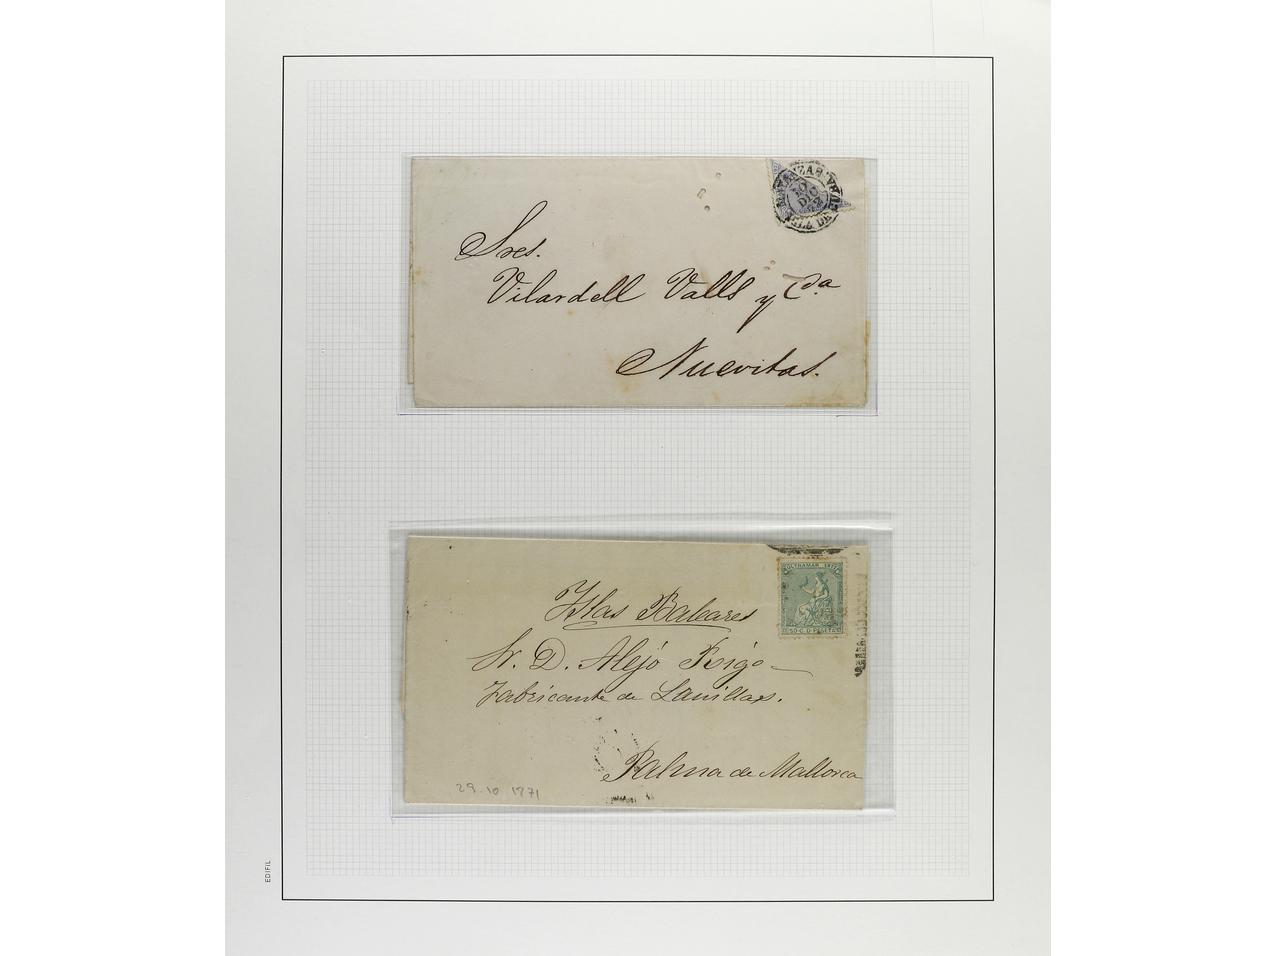 MATANZAS
10
DIC
ISLA DE CUBA
Sres.
Vilardell Valls y Cda
Nuevitas.
ULTRAMAR 1871
50 C. D PESETA
Islas Baleares
Sr. D. Alejo Rigo
Fabricante de Lanillas.
Palma de Mallorca
29.10 1871
EDIFIL